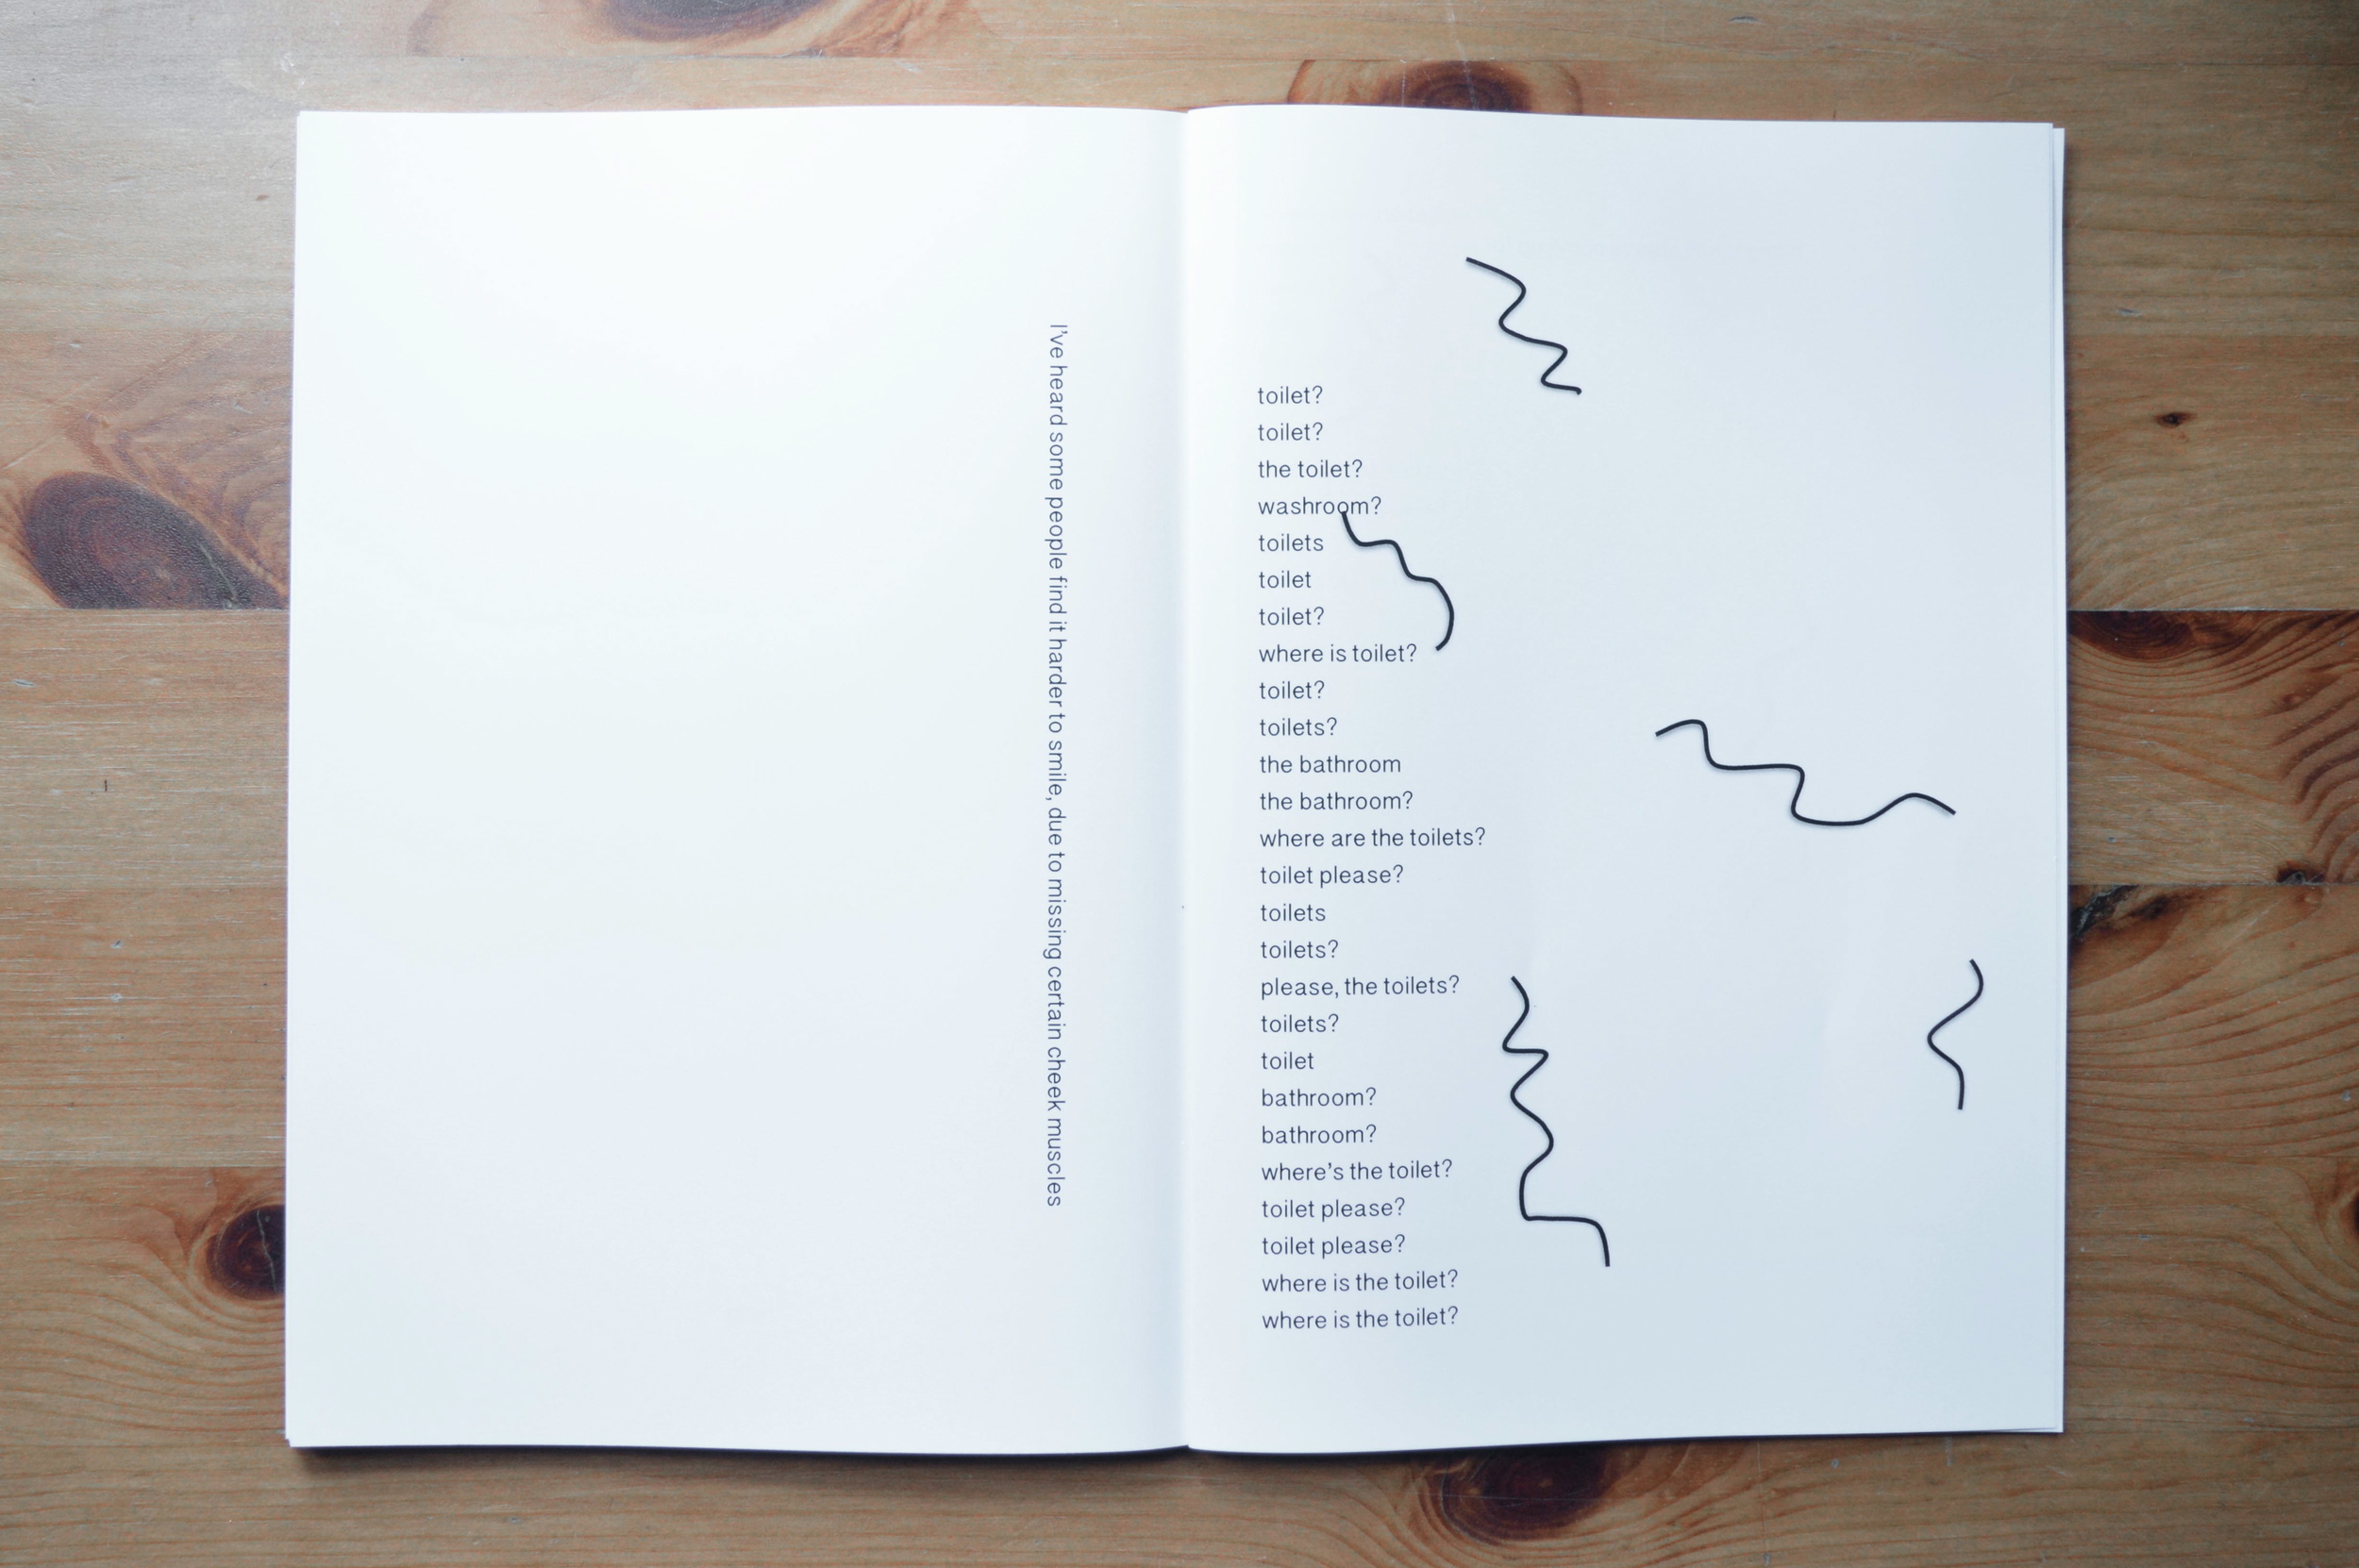 I've heard some people find it harder to smile, due to missing certain cheek muscles
toilet?
toilet?
the toilet?
washroom?
toilets
toilet
toilet?
where is toilet?
toilet?
toilets?
the bathroom
the bathroom?
where are the toilets?
toilet please?
toilets
toilets?
please, the toilets?
toilets?
toilet
bathroom?
bathroom?
where's the toilet?
toilet please?
toilet please?
where is the toilet?
where is the toilet?